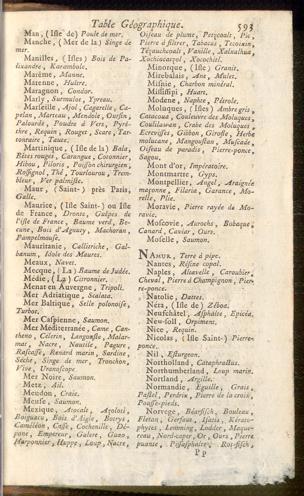 Table Géographique. 593
Man, (Isle de) Poule de mer.
Manche, (Mer de la) Singe de
mer.
Manilles, (Isles) Bois de Pa-
lixandre, Karambole.
Marême, Manne.
Marenne, Huitre.
Maragnon, Condor.
Marly, Surmulot, Ypreau.
Marseille, Ajol, Cagarelle, Ca-
pelan, Marteau, Mendole, Oursin,
Palourde, Poudre à Vers, Pyre-
thre, Requin, Rouget, Scare, Tar-
tonraire, Tautc,
Martinique, (Isle de la) Bala,
Bêtes rouges, Carangue, Cotonnier,
Hibou, Piloris, Poisson chirurgien,
Rossignol, Thé, Tourlourou, Trem-
bleur, Ver palmiste.
Maur, (Saint-) près Paris,
Galle.
Maurice, (Isle Saint-) ou Isle
de France, Dronte, Guêpes de
l'isle de France, Baume verd, Be-
cune, Bois d'Aguacy, Machoran,
Pampelmouse.
Mauritanie, Callitriche, Gal-
banum, Idole des Maures.
Meaux, Navet.
Mecque, (La) Baume de Judée.
Médie, (La) Citronnier.
Menat en Auvergne, Tripoli.
Mer Adriatique, Scalata.
Mer Baltique, Selle polonoise,
Turbot.
Mer Caspienne, Saumon.
Mer Méditerranée, Came, Can-
theno, Célerin, Langouste, Malar-
mat, Nacre, Nautile, Pagure,
Rascasse, Renard marin, Sardine,
Séche, Singe de mer, Tronchon,
Vive, Uranoscope
Mer Noire, Saumon.
Metz, Ail.
Meudon, Craie.
Meuse, Saumon.
Mexique, Arocals, Axolotl,
Boiguacu, Bois d'Aigle, Botrys,
Caméléon, Casse, Cochenille, Dé-
pane, Empereur, Galere, Guao,
Harponnier, Huppe, Loup, Nacre,
Oiseau de plume, Petzcoali, Pic,
Pierre à filtrer, Tabacus, Tecoixin,
Téquichoouls, Vanille, Xalxalhua,
Xochiocaxpol, Xocochitl.
Minorque, (Isle) Granit.
Mirebalais, Ane, Mulet.
Misnie, Charbon minéral.
Mississipi, Huart.
Modene, Naphte, Pétrole.
Moluques, (Isles) Ambre gris,
Concoxu, Couleuvre des Moluques,
Coullawan, Crabe des Moluques,
Ecrevisses, Gibbon, Girofle, Herbe
molucane, Mangoustan, Muscade,
Oiseau de paradis, Pierre-ponce,
Sagou.
Mont d'or, Impératoire.
Montmartre, Gyps.
Montpellier, Angel, Araignée
maçonne, Filaria, Garance, Mo-
relle, Plie.
Moravie, Pierre rayée de Mo-
ravie.
Moscovie, Aurochs, Bobaque,
Canard, Caviar, Ours.
Moselle, Saumon.
NAMUR, Terre à pipe.
Nantes, Résine copal.
Naples, Altavelle, Caroubier,
Cheval, Pierre à Champignon, Pier-
re-ponce.
Natolie, Dattes.
Néra, (Isle de) Zéboa.
Neufchâtel, Asphalte, Epicéa.
New-foll, Orpiment.
Nice, Requin.
Nicolas, (Isle Saint-) Pierre-
ponce.
Nil, Esturgeon.
Northolland, Cataphractus.
Northumberland, Loup marin.
Nortland, Argille.
Normandie, Eguille, Grais
Pastel, Perdrix, Pierre de la croix,
Pousse-pieds.
Norvege, Béarfisch, Bouleau,
Flétan, Gerfaut, Isatis, Kérato-
phytes, Lemming, Lodder, Maque-
reau, Nord-caper, Or, Ours, Pierre
puante, Pissasphalte, Rot-fisch,
P p